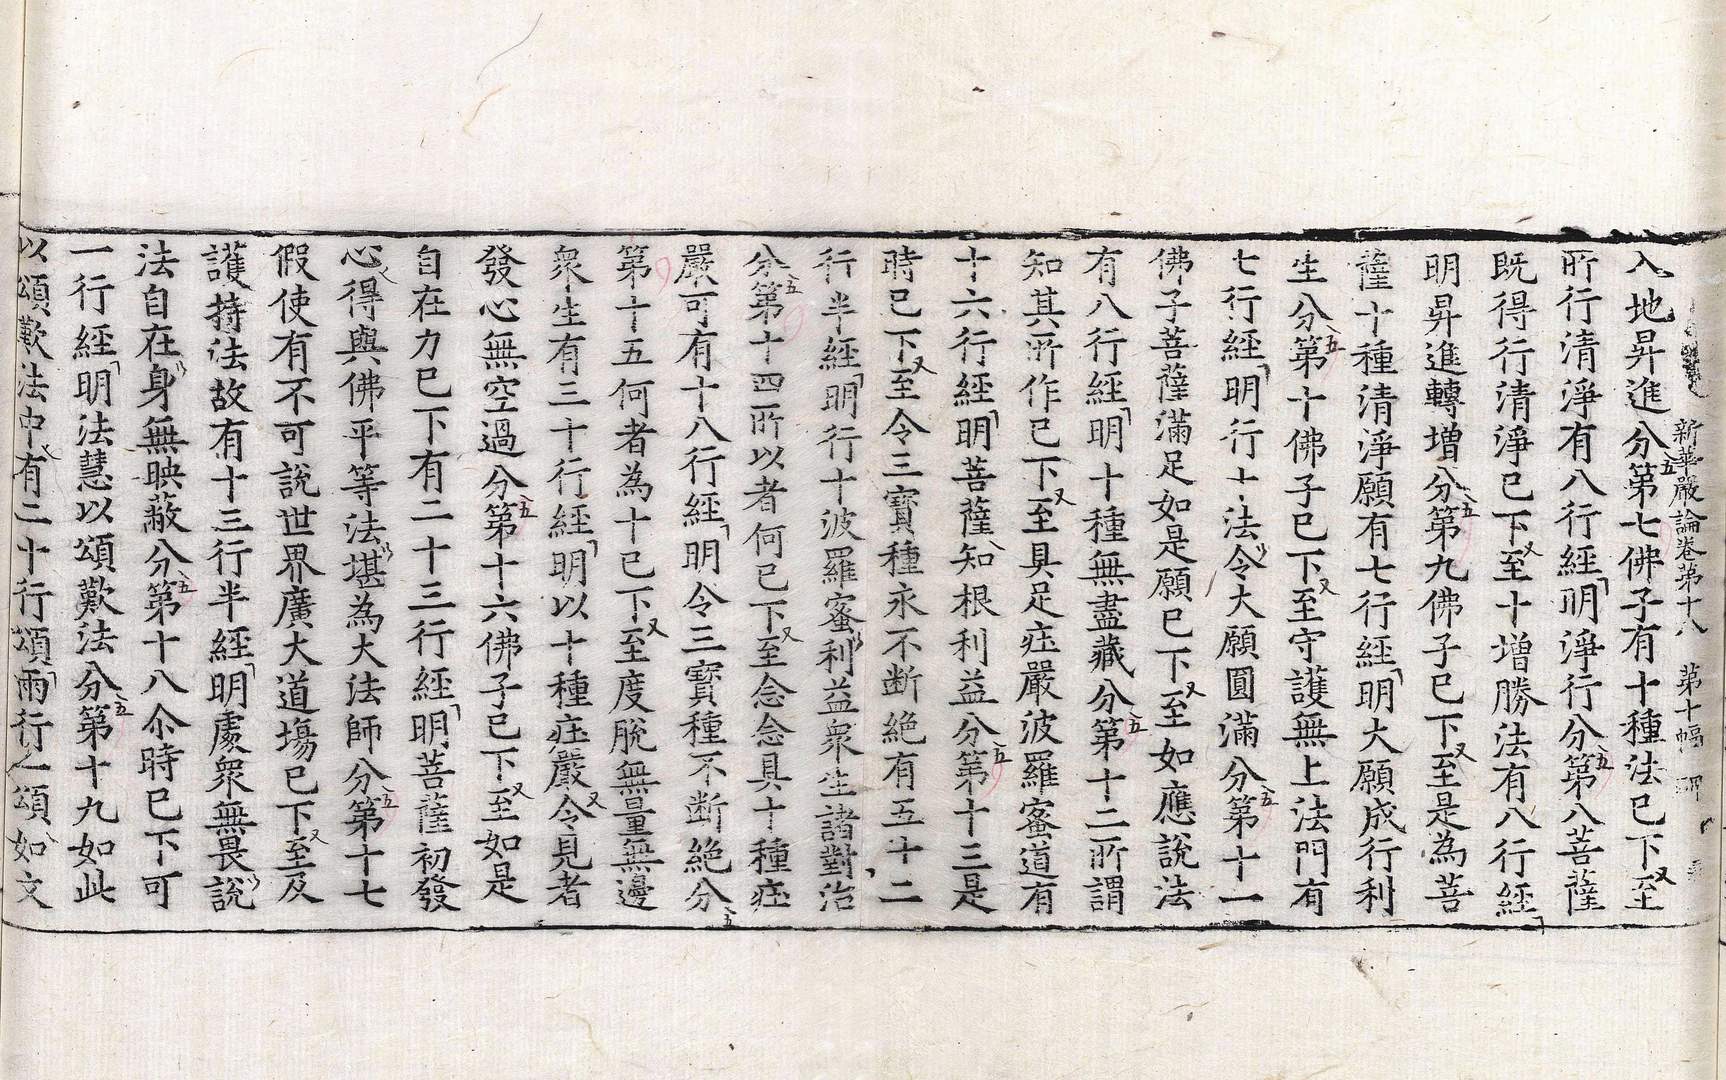 新華嚴論卷第十八　第十幅
入地昇進分第七佛子有十種法已下至
所行清淨有八行經明淨行分第八菩薩
既得行清淨已下至十增勝法有八行經
明昇進轉增分第九佛子已下至是為菩
薩十種清淨願有七行經明大願成行利
生分第十佛子已下至守護無上法門有
七行經明行十法令大願圓滿分第十一
佛子菩薩滿足如是願已下至如應說法
有八行經明十種無盡藏分第十二所謂
知其所作已下至具足莊嚴波羅蜜道有
十六行經明菩薩知根利益分第十三是
時已下至令三寶種永不斷絕有五十二
行半經明行十波羅蜜利益眾生諸對治
分第十四所以者何已下至念念具十種莊
嚴可有十八行經明令三寶種不斷絕分
第十五何者為十已下至度脫無量無邊
眾生有三十行經明以十種莊嚴令見者
發心無空過分第十六佛子已下至如是
自在力已下有二十三行經明菩薩初發
心得與佛平等法堪為大法師分第十七
假使有不可說世界廣大道場已下至及
護持法故有十三行半經明處眾無畏說
法自在身無映蔽分第十八尒時已下可
一行經明法慧以頌歎法分第十九如此
以頌歎法中有二十行頌兩行一頌如文